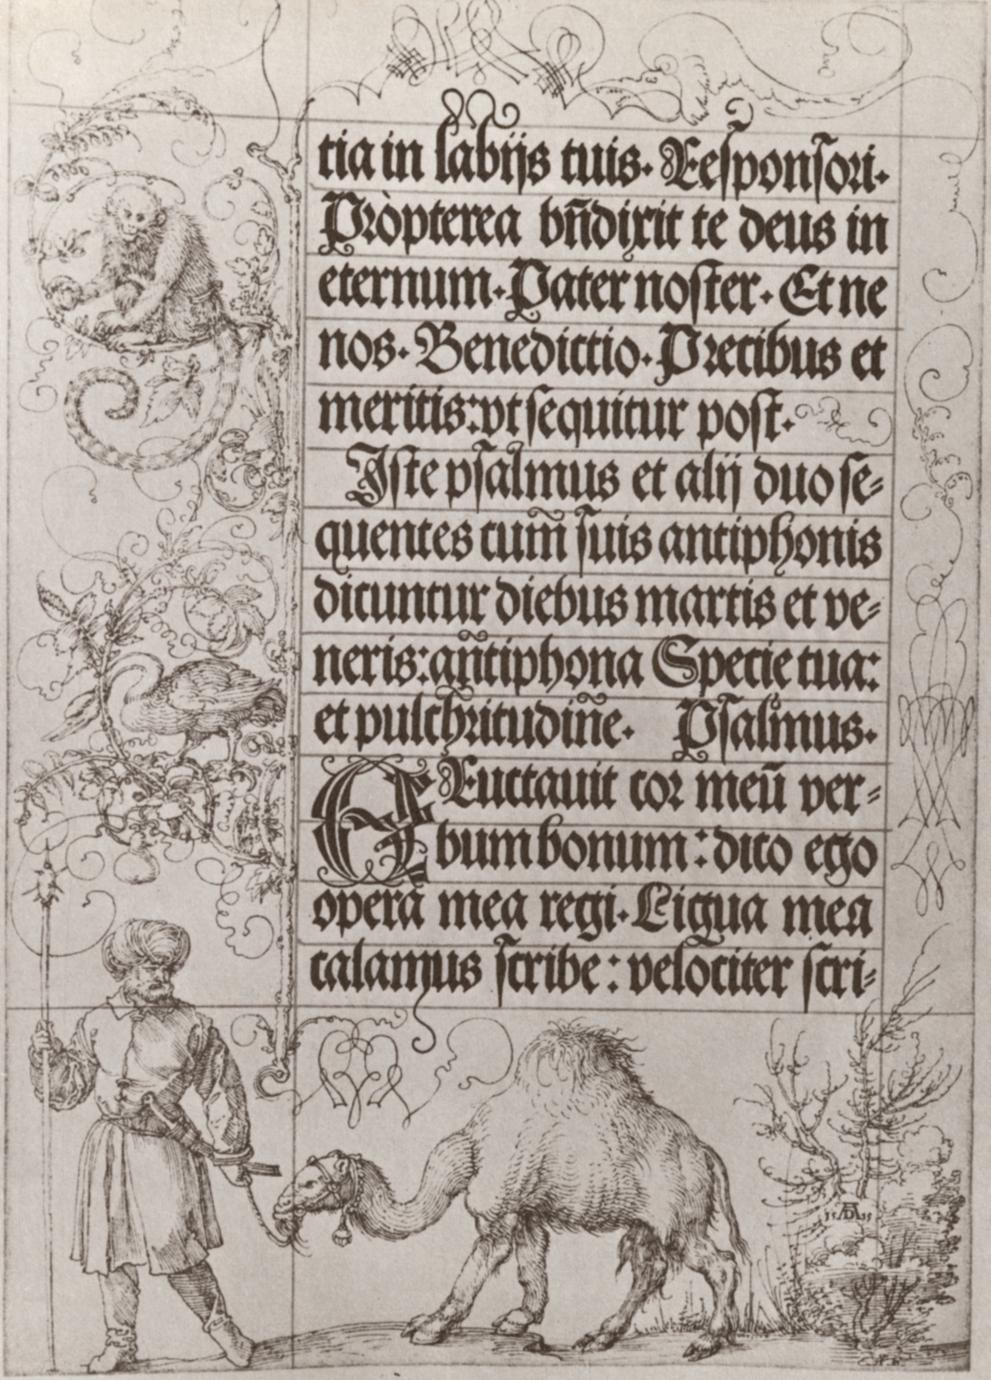 tia in labijs tuis. Responsori.
Propterea bñdixit te deus in
eternum. Pater noster. Et ne
nos. Benedictio. Precibus et
meritis: vt sequitur post.
Iste psalmus et alij duo se=
quentes cum̃ suis antiphonis
dicuntur diebus martis et ve=
neris: añtiphona Specie tua:
et pulchritudiñe. Psalmus.
ERuctauit cor meũ ver=
bum bonum: dico ego
opera mea regi. Ligua mea
calamus scribe: velociter scri=
15 AD 15